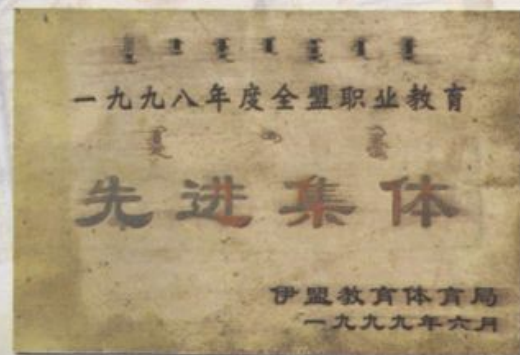 一九九八年度全盟职业教育
先进集体
伊盟教育体育局
一九九九年六月